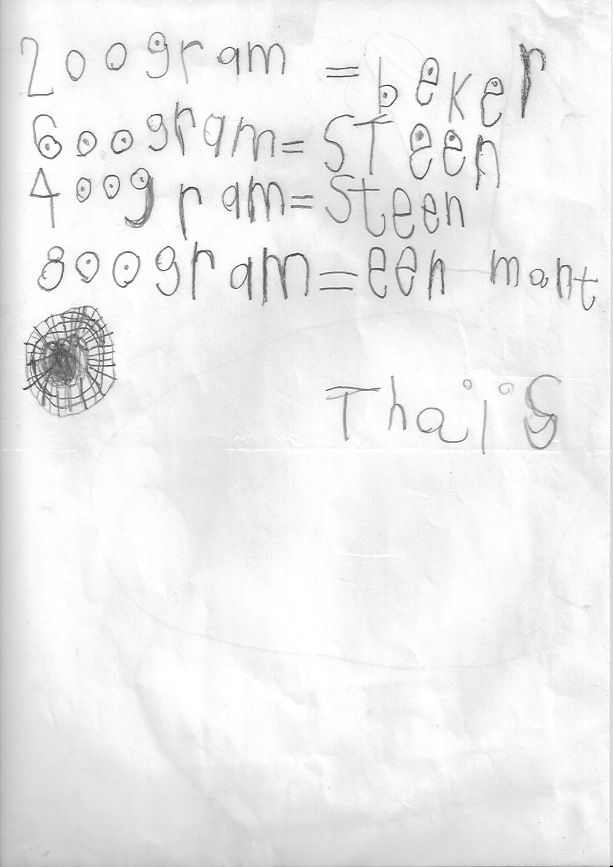 200gram = beker
600gram= STeen
400gram= Steen
800gram= een mant
Thaïs